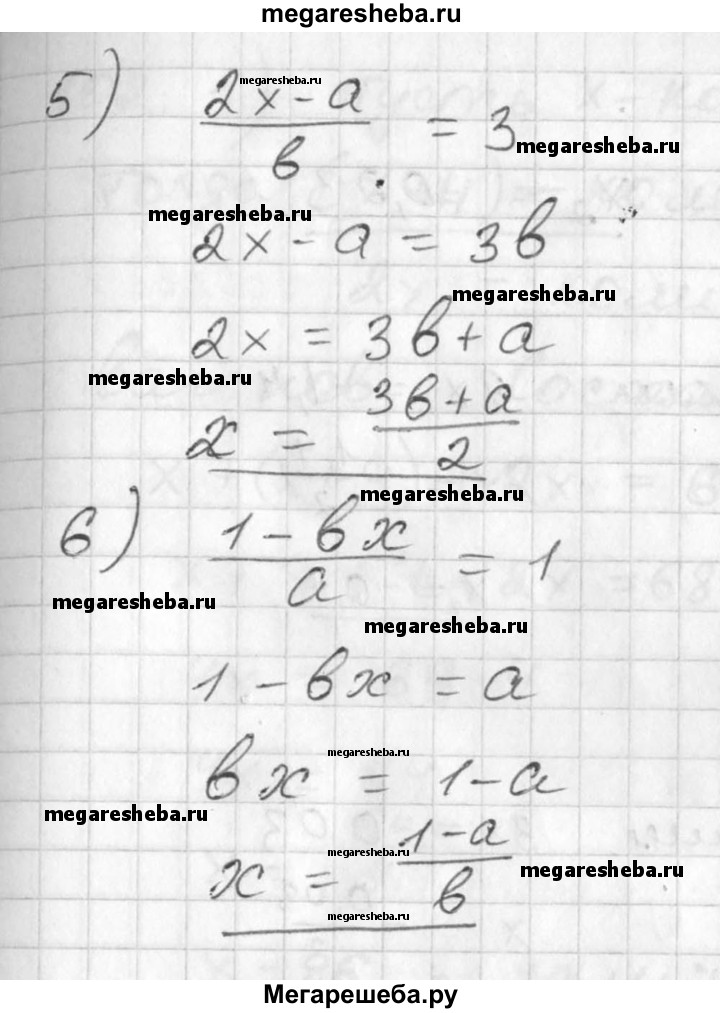 megaresheba.ru
5) (2x - a)/в = 3
megaresheba.ru
megaresheba.ru
megaresheba.ru
2x - a = 3в
megaresheba.ru
2x = 3в + a
megaresheba.ru
x = (3в + a)/2
megaresheba.ru
6) (1 - вx)/a = 1
megaresheba.ru
megaresheba.ru
1 - вx = a
megaresheba.ru
вx = 1 - a
megaresheba.ru
x = (1 - a)/в
megaresheba.ru
megaresheba.ru
megaresheba.ru
Мегарешеба.ру